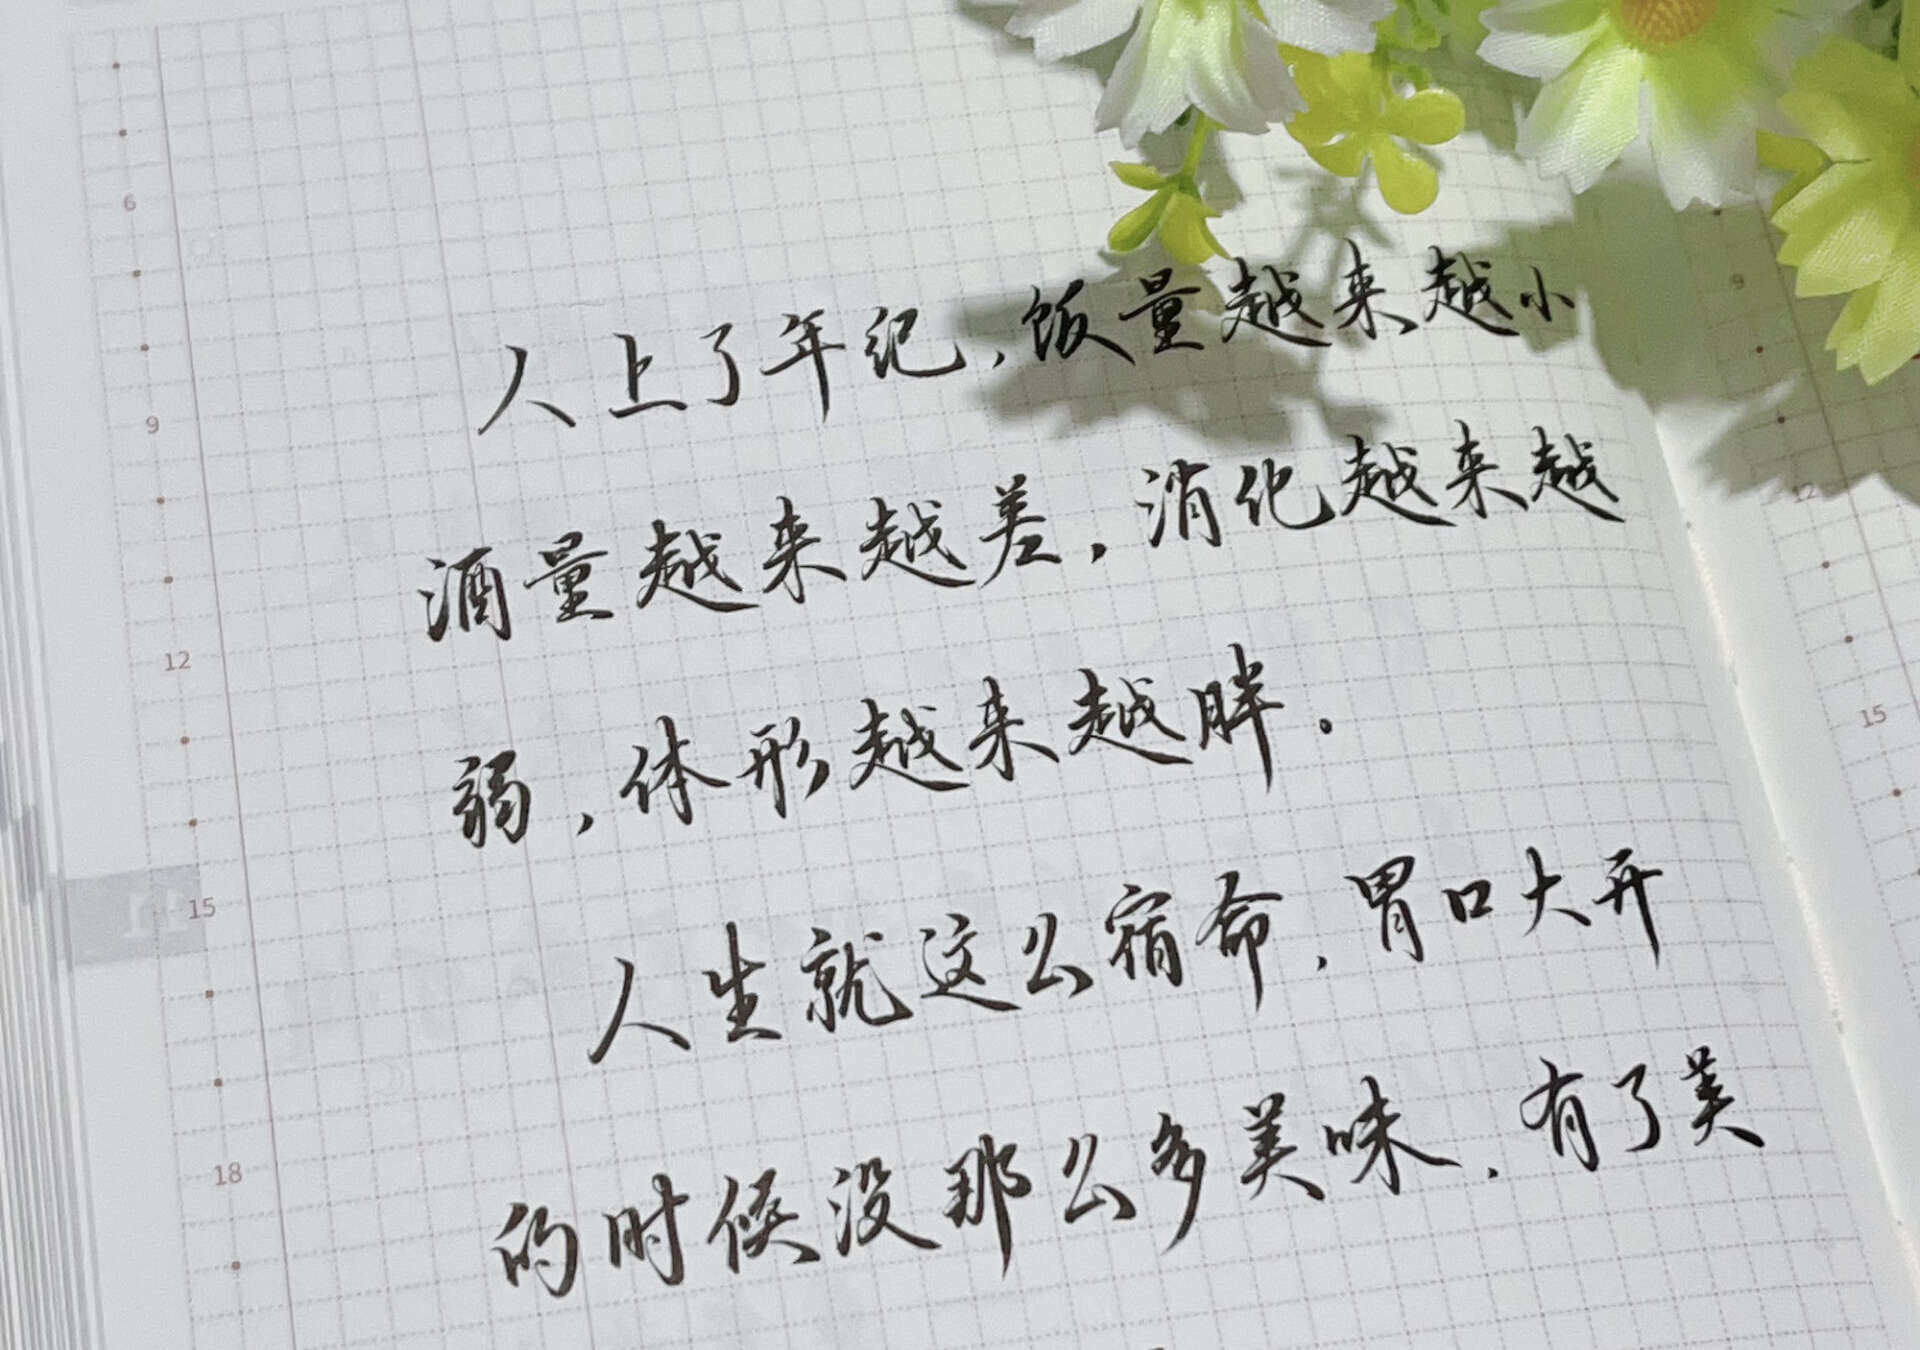 人上了年纪，饭量越来越小
酒量越来越差，消化越来越
弱，体形越来越胖。
人生就这么宿命，胃口大开
的时候没那么多美味，有了美
6
9
12
15
18
9
12
15
11